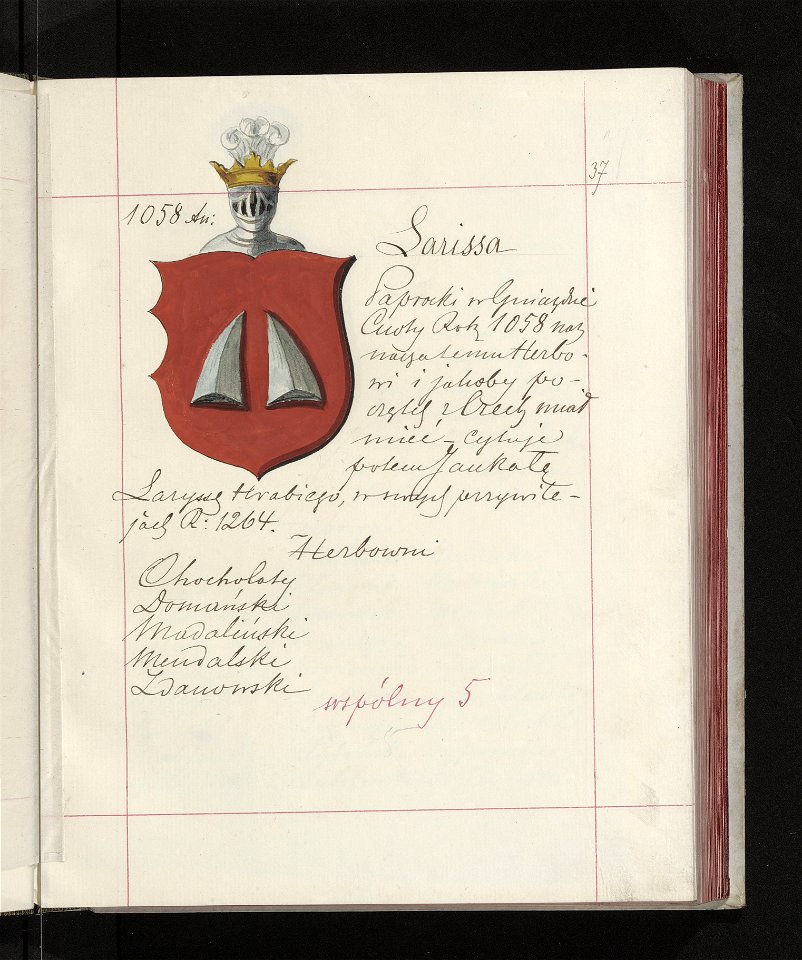 37
1058 An:
Larissa
Paprocki w Gniazdzie
Cnoty Rokų 1058 naz
nacza temu Herbo-
wi i jakoby po-
czątek z Czech miał
mieć - cytuje
potem Jankołę
Laryszę Hrabiego, w swych przywile-
jach R: 1264.
Herbowni
Chocholaty
Domański
Madaliński
Mendalski
Zdanowski
wspólny 5